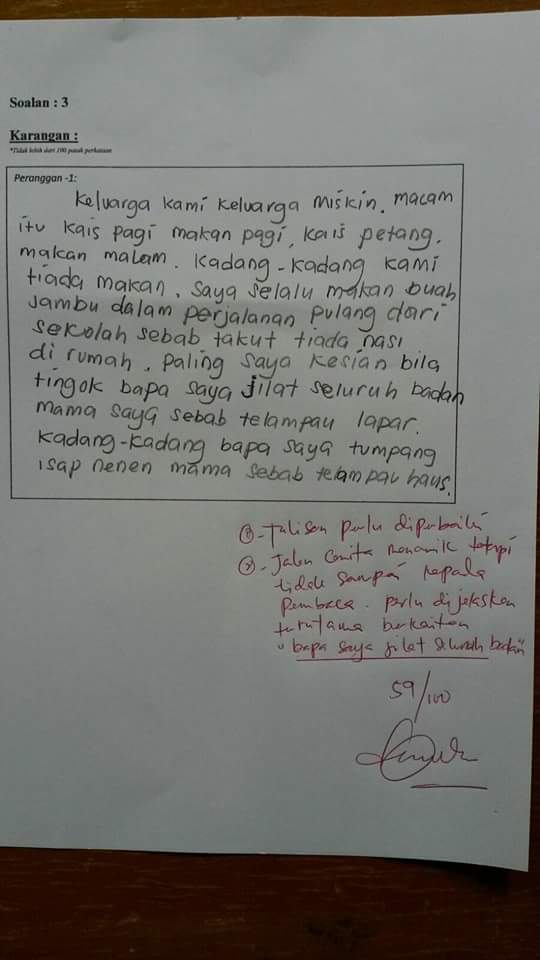 Soalan : 3
Karangan :
*Tidak lebih dari 100 patah perkataan
Peranggan -1:
Keluarga kami keluarga miskin. macam
itu kais pagi makan pagi, kais petang.
makan malam. Kadang-kadang kami
tiada makan. saya selalu makan buah
jambu dalam perjalanan pulang dari
sekolah sebab takut tiada nasi
di rumah. paling saya kesian bila
tingok bapa saya jilat seluruh badan
mama saya sebab telampau lapar.
Kadang-kadang bapa saya tumpang
isap nenen mama sebab telampau haus.
① - Tulisan perlu diperbaiki
② - Jalan cerita menarik tetapi
tidak sampai kepala
pembaca. perlu dijelaskan
terutama berkaitan
"bapa saya jilat seluruh badan"
59/100